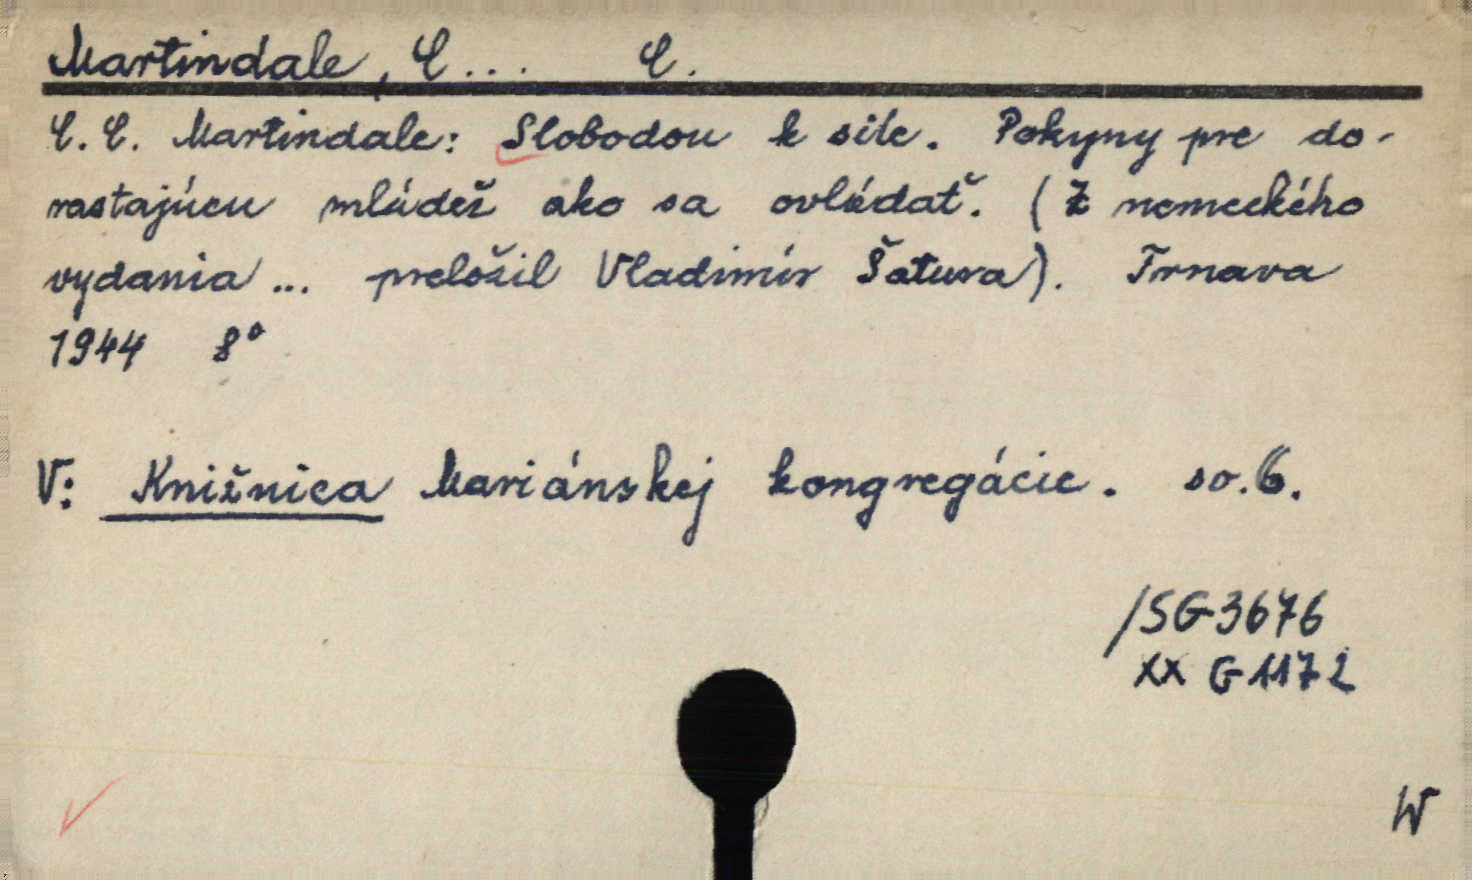 Martindale, C... C.
C. C. Martindale: Slobodou k sile. Pokyny pre do-
rastajúcu mládež ako sa ovládať. (Z nemeckého
vydania ... preložil Vladimír Šatura). Trnava
1944 8°
V: Knižnica Mariánskej kongregácie. sv. 6.
/SG 3676
XX G 1172
W